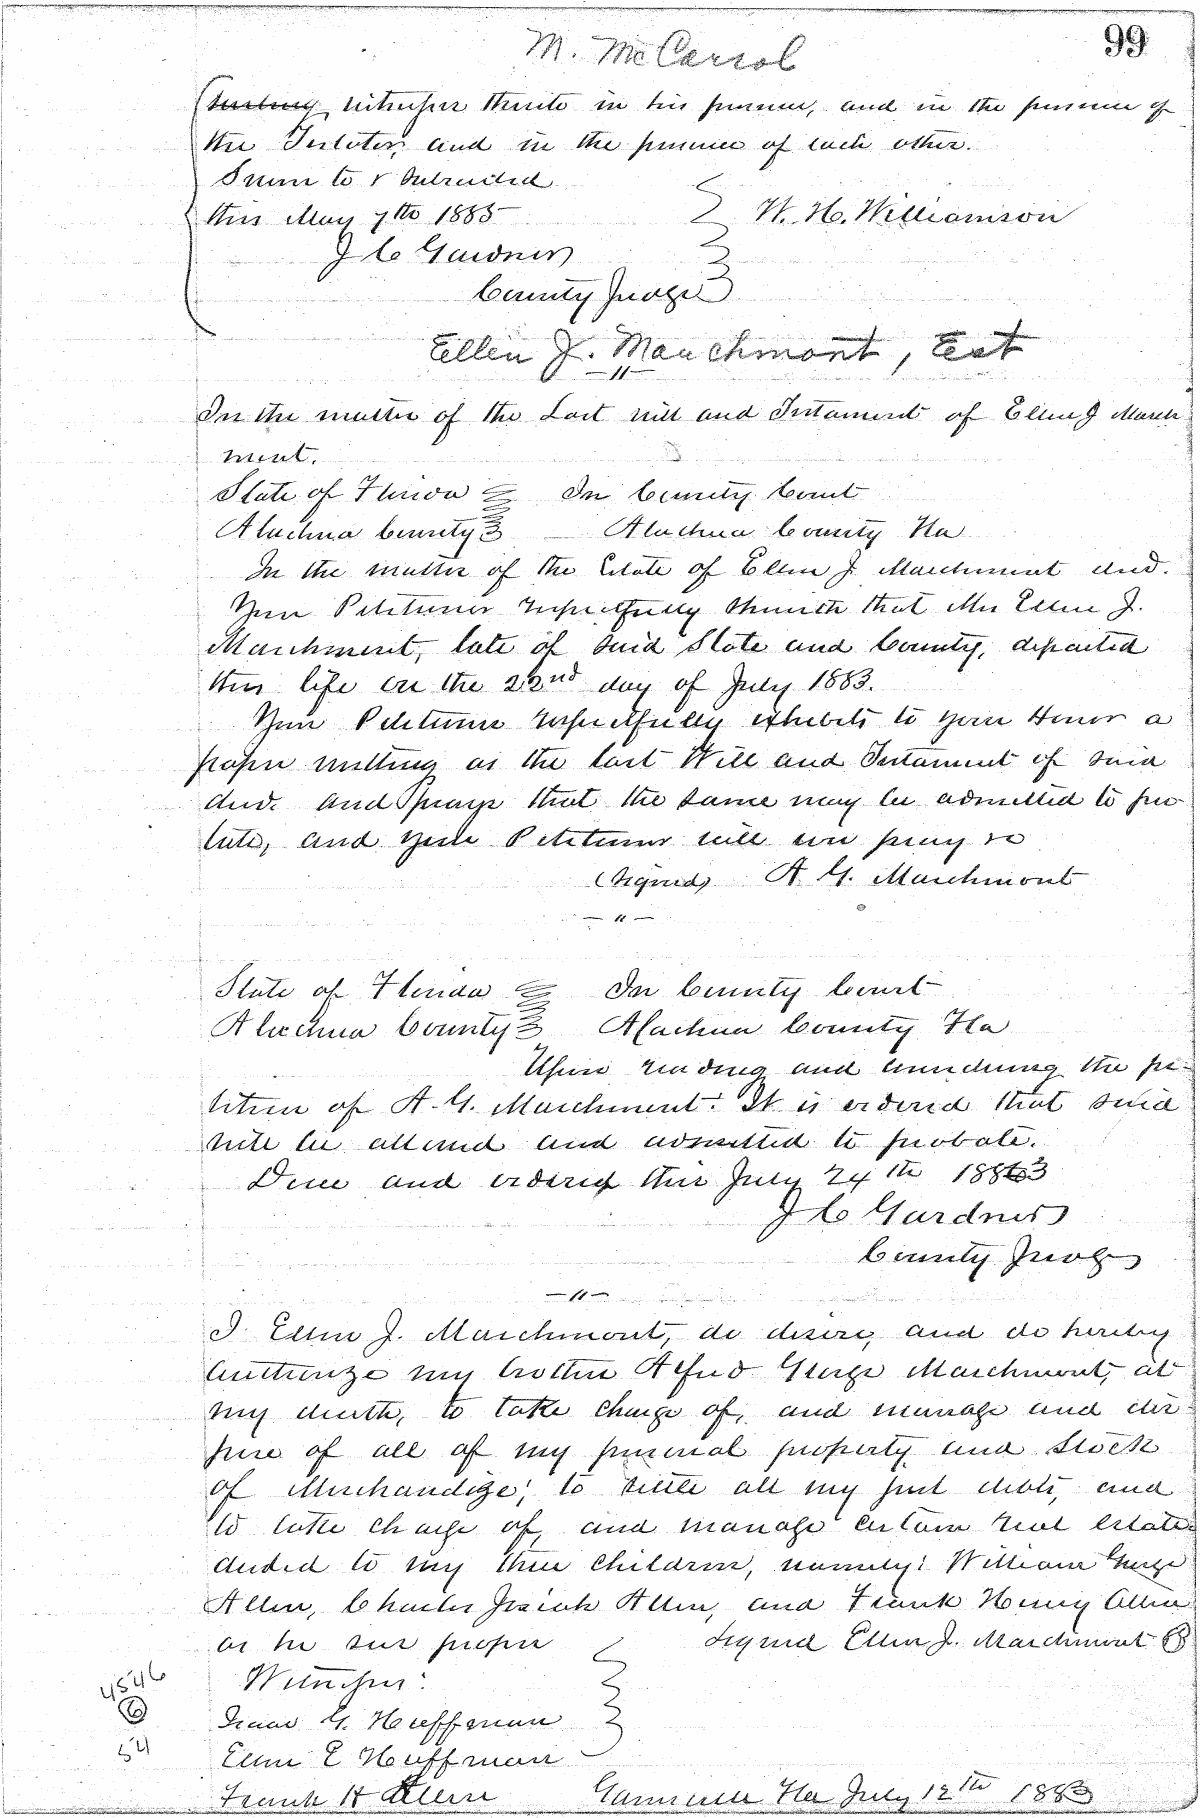 99
M. McCarrol
witnesses thereto in his presence, and in the presence of
the Testator, and in the presence of each other.
Sworn to & subscribed
this May 7th 1885 W. H. Williamson
J C Gardner
County Judge
Ellen J. Marchmont, Est
—"—
In the matter of the Last will and Testament of Ellen J March
ment.
State of Florida In County Court
Alachua County Alachua County Fla
In the matter of the Estate of Ellen J. Marchmont decd.
Your Petitioner respectfully sheweth that Mrs Ellen J.
Marchment, late of said State and County, departed
this life on the 22nd day of July 1883.
Your Petitioner respectfully exhibits to your Honor a
paper writting as the last Will and Testament of said
decd. and prays that the same may be admitted to pro
bate, and your Petitioner will ever pray &c
(Signed) A. G. Marchmont
—"—
State of Florida In County Court
Alachua County Alachua County Fla
Upon reading and considering the pe-
tition of A. G. Marchment. It is ordered that said
will be allowed and admitted to probate.
Done and ordered this July 24th 1883
J C Gardner
County Judge
—"—
I Ellen J. Marchmont, do desire, and do hereby
authorize my brother Alfred George Marchmont, at
my death, to take charge of, and manage and dis-
pose of all of my personal property and stock
of Merchandize; to settle all my just debts, and
to take charge of, and manage certain real estate
deeded to my three children, namely: William George
Allen, Charles Josiah Allen, and Frank Henry Allen
as he sees proper Signed Ellen J. Marchmont
Witnesses:
Isaac G. Huffman
Ellen E Huffman
Frank H Allen Gainesville Fla July 12th 1883
4546
6
54